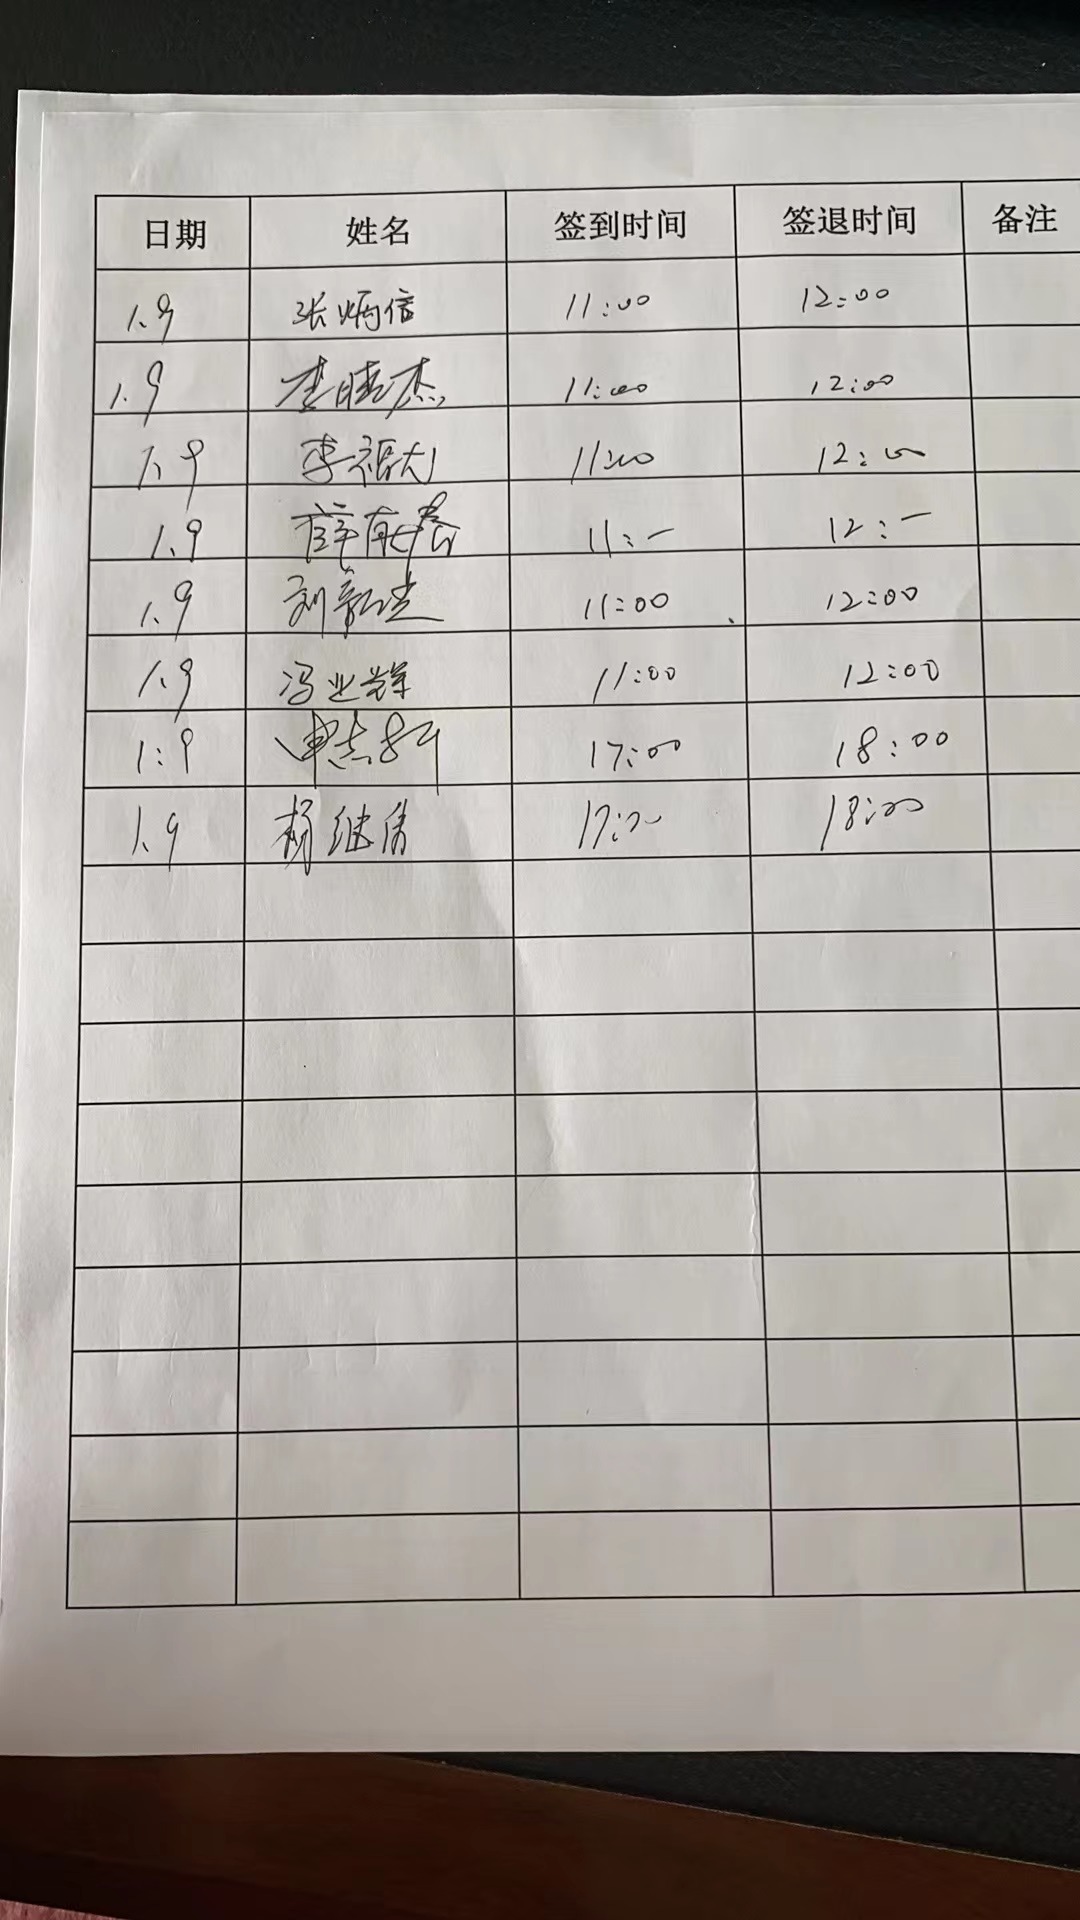 日期 姓名 签到时间 签退时间 备注
1.9 张炳信 11:00 12:00
1.9 李晓杰 11:00 12:00
1.9 李福大 11:00 12:00
1.9 薛 11:- 12:-
1.9 刘 11:00 12:00
1.9 冯业辉 11:00 12:00
1:9 申志 17:00 18:00
1.9 杨继 17:00 18:00